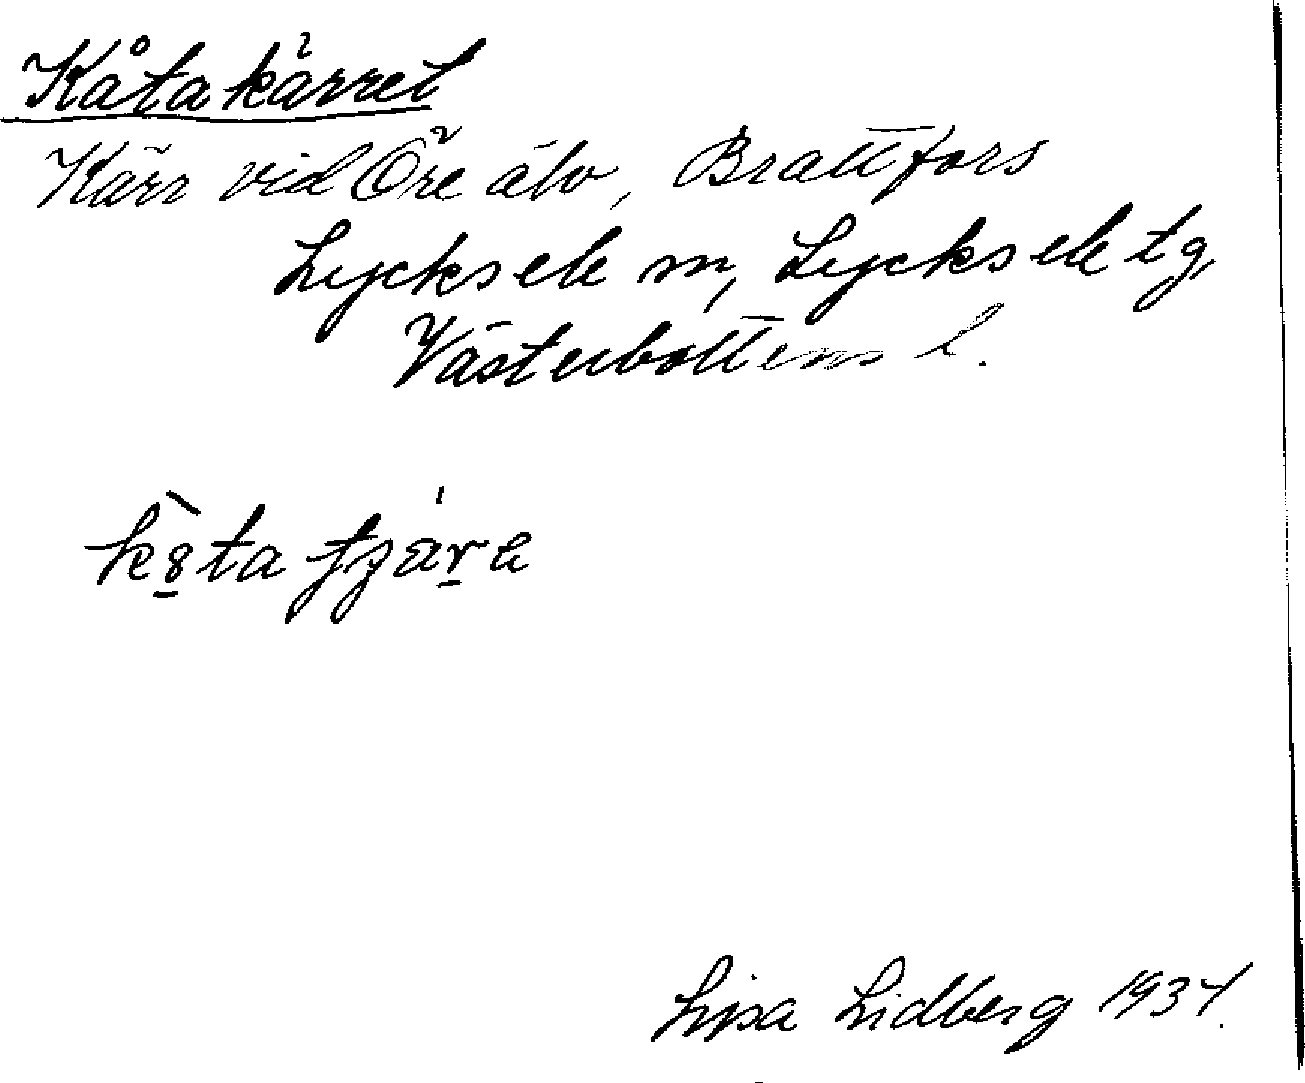 Kåtakärret
Kärr vid Öre älv, Brattfors
Lycksele m, Lycksele tg,
Västerbottens l.
Lisa Lidberg 1934.